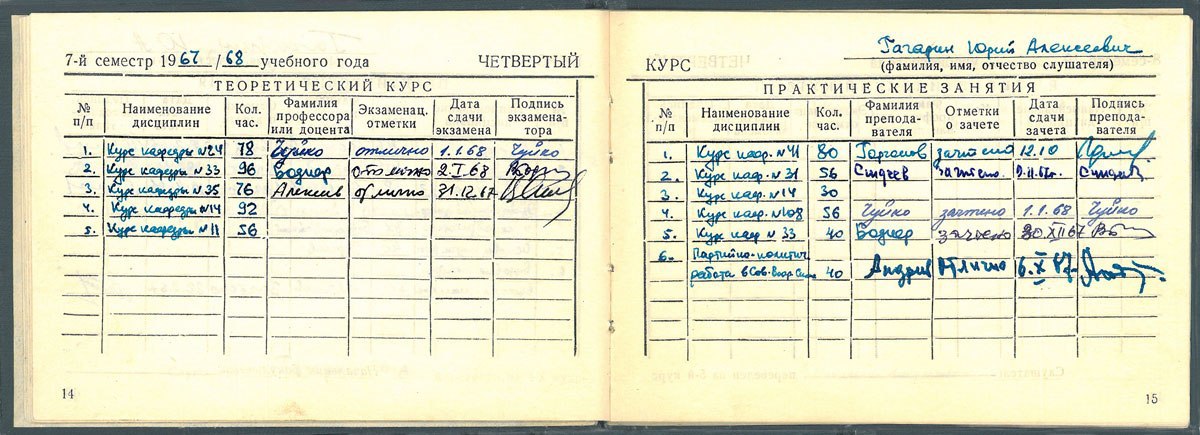 7-й семестр 1967/68 учебного года ЧЕТВЕРТЫЙ
ТЕОРЕТИЧЕСКИЙ КУРС
№ п/п Наименование дисциплин Кол. час. Фамилия профессора или доцента Экзаменац. отметки Дата сдачи экзамена Подпись экзамена-тора
1. Курс кафедры №24 78 Чуйко отлично 1.1.68 Чуйко
2. Курс кафедры №33 96 Боднер отлично 2.I.68
3. Курс кафедры №35 76 Алексеев отлично 31.12.67
4. Курс кафедры №14 92
5. Курс кафедры №11 56
14
Гагарин Юрий Алексеевич
КУРС (фамилия, имя, отчество слушателя)
ПРАКТИЧЕСКИЕ ЗАНЯТИЯ
№ п/п Наименование дисциплин Кол. час. Фамилия препода-вателя Отметки о зачете Дата сдачи зачета Подпись препода-вателя
1. Курс каф. №41 80 зачтено 12.10
2. Курс каф. №31 56 зачтено
3. Курс каф. №14 30
4. Курс каф. №108 56 Чуйко зачтено 1.1.68 Чуйко
5. Курс каф №33 40 Боднер зачтено 30 XII 67
6. Партийно-политич.
работа в Сов. Воор. Силах 40 отлично 6.X 67
15